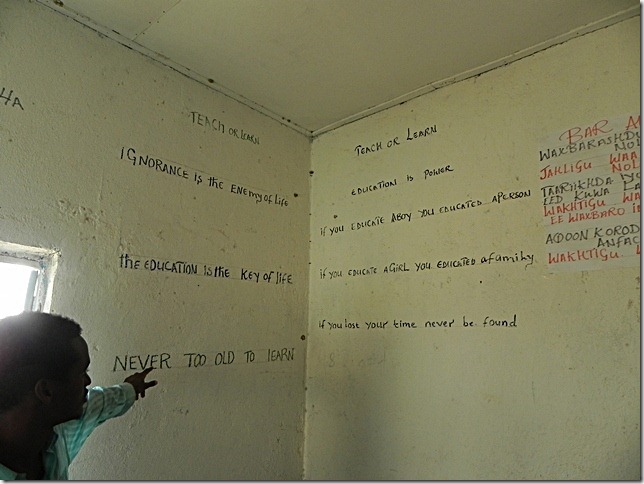 HA
TEACH OR LEARN
IGNORANCE is the ENEMY of life
the EDUCATION is the KEY of life
NEVER TOO OLD TO LEARN
TEACH OR LEARN
EDUCATION is POWER
if you EDUCATE A BOY you EDUCATED APERSON
if you EDUCATE AGIRL you EDUCATED afamiky
if you lost your time never be found
BAR
WAXBARASHD
JAHLIGU WAA
TAARIIKHDA
EED KUWA
WAKHTIGU WA
EE WAXBARO
ADOON KOROD
ANFAC
WAKHTIGU